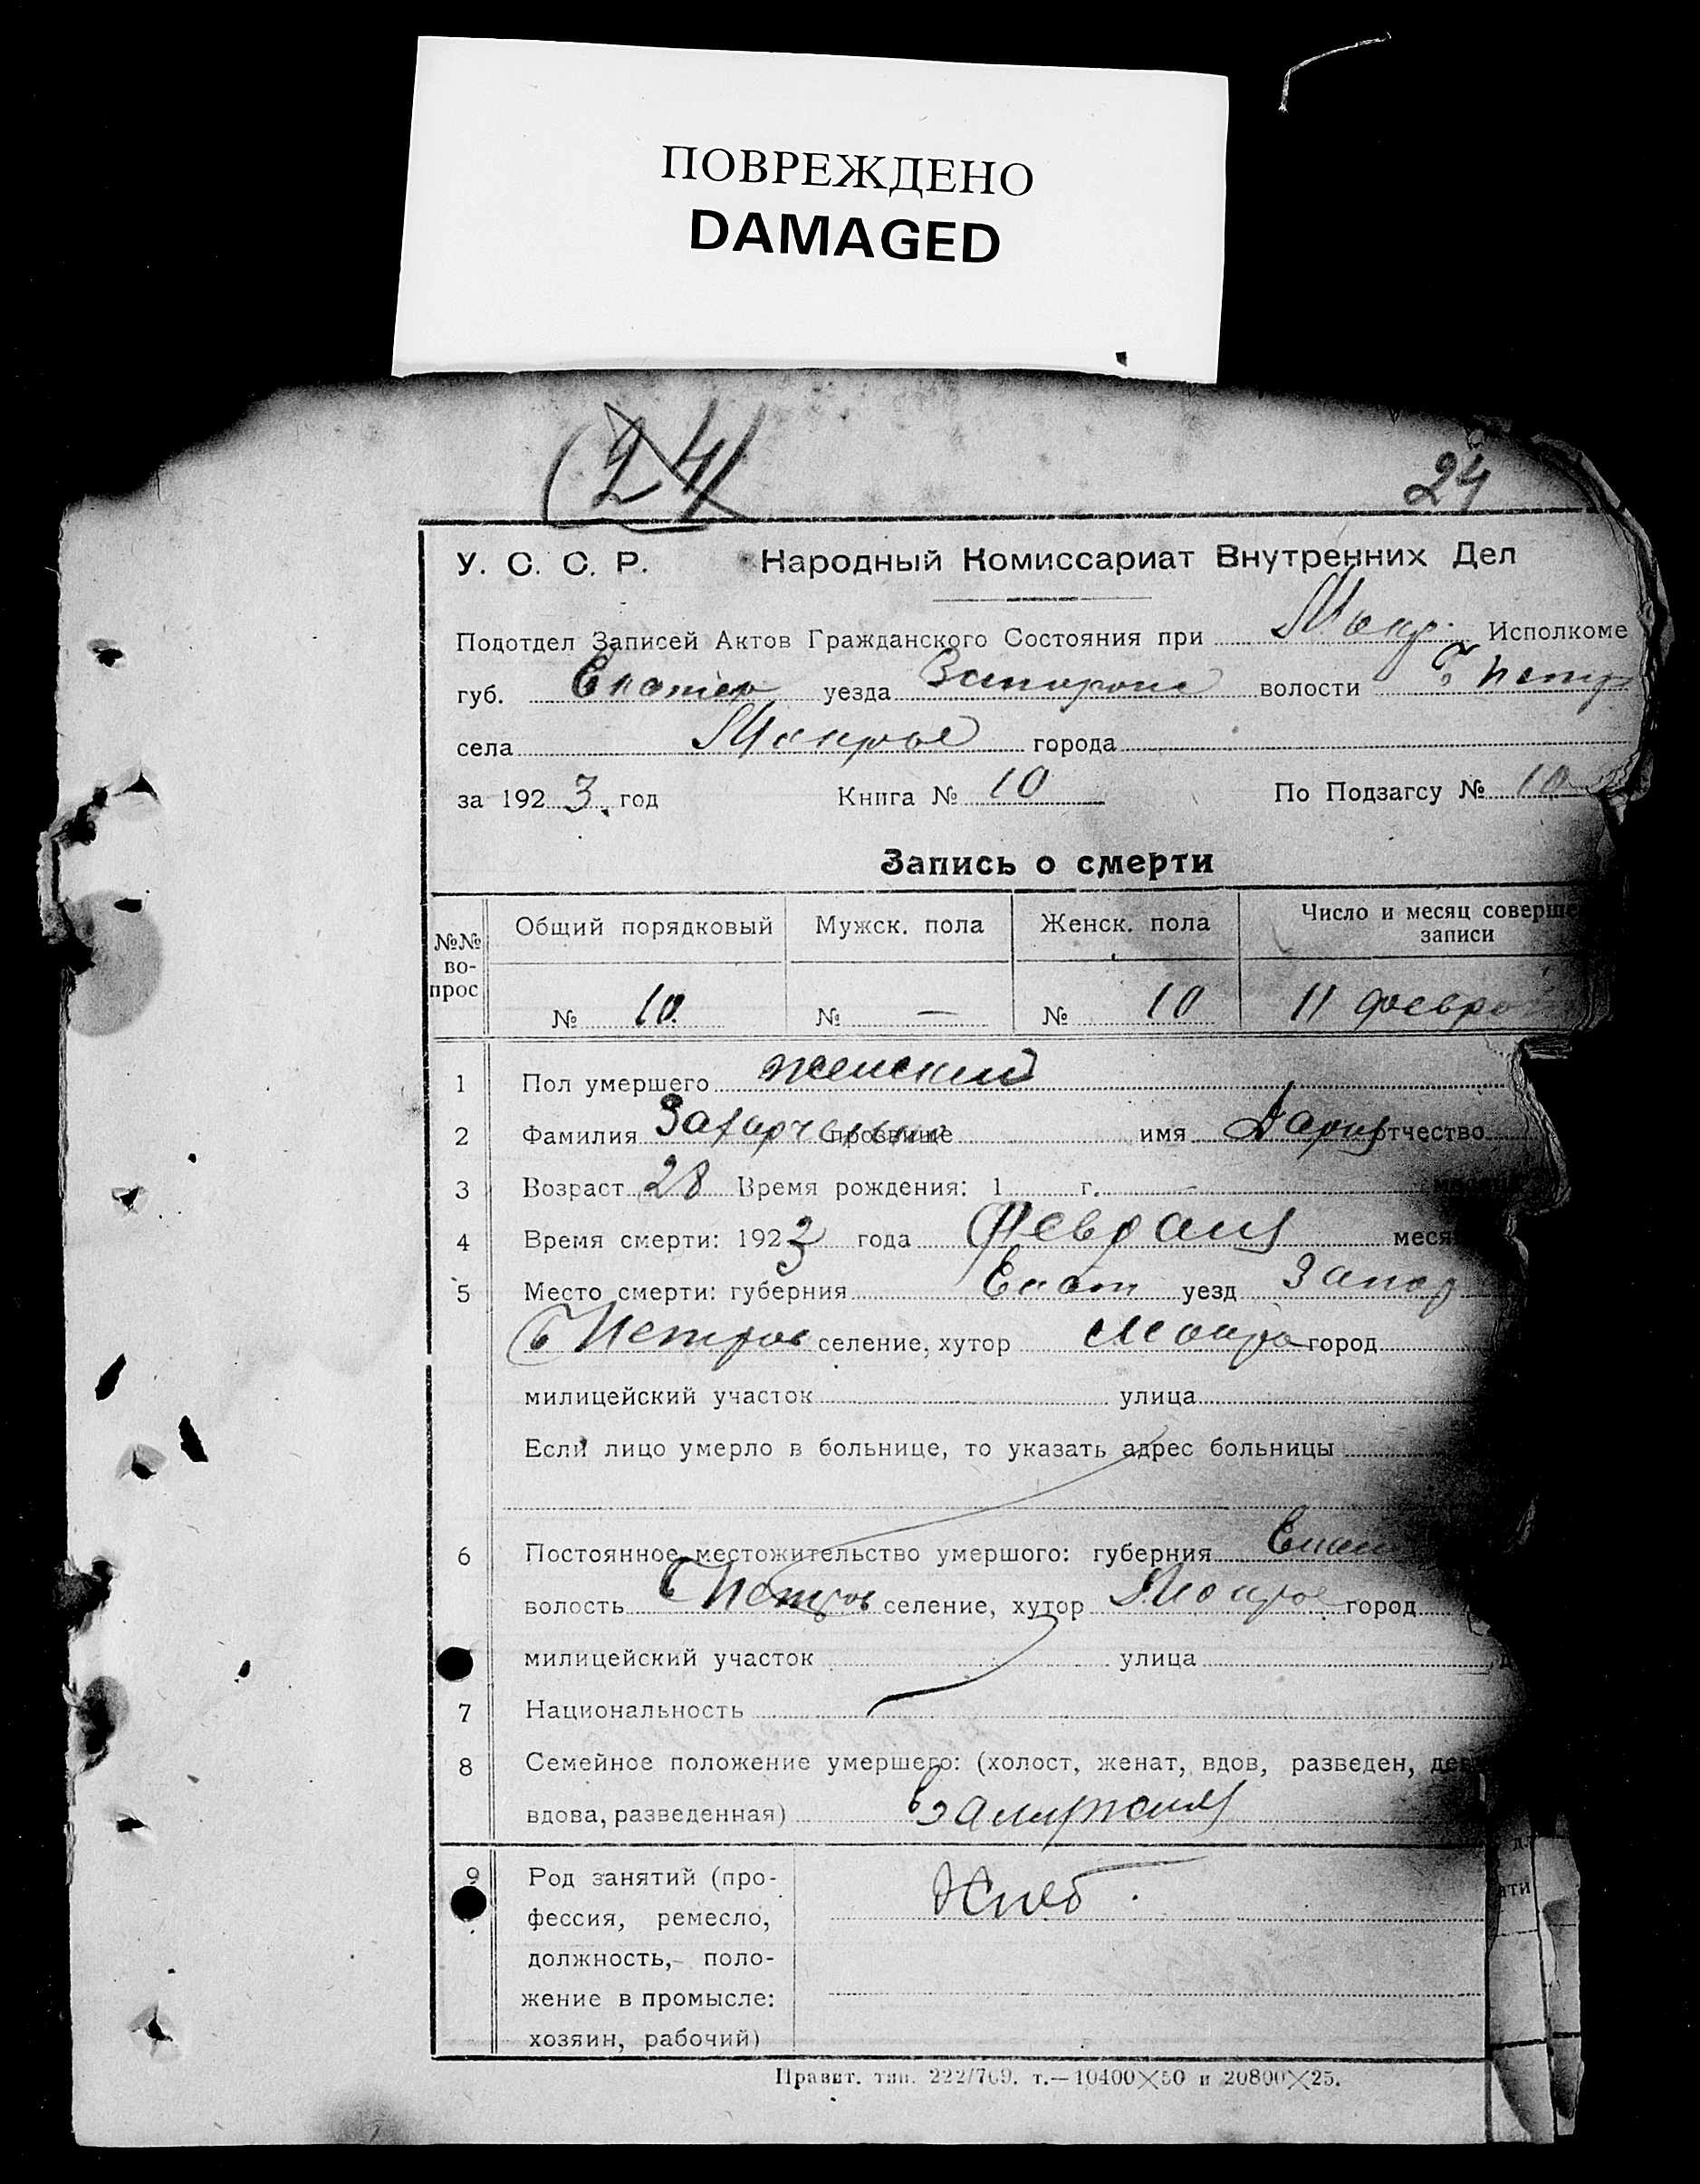 ПОВРЕЖДЕНО
DAMAGED
24
24
У. С. С. Р. Народный Комиссариат Внутренних Дел
Подотдел Записей Актов Гражданского Состояния при Мокр. Исполкоме
губ. Екатер уезда волости Петр
села Мокрое города
за 1923 год Книга № 10 По Подзагсу № 10
Запись о смерти
№№ во-прос Общий порядковый Мужск. пола Женск. пола Число и месяц соверше
записи
№ 10 № — № 10 11 февра
1 Пол умершего женский
2 Фамилия Захарченко прозвище имя Дария отчество
3 Возраст 28 Время рождения: 1 г.
4 Время смерти: 1923 года Февраля меся
5 Место смерти: губерния Екат уезд Запор
Петров селение, хутор Мокро город
милицейский участок улица
Если лицо умерло в больнице, то указать адрес больницы
6 Постоянное местожительство умершого: губерния Екат
волость Петров селение, хутор Мокрое город
милицейский участок улица
7 Национальность
8 Семейное положение умершего: (холост, женат, вдов, разведен, дев
вдова, разведенная) замужняя
9 Род занятий (про-
фессия, ремесло, Хлеб.
должность,- поло-
жение в промысле:
хозяин, рабочий)
Правит. тип. 222/769. т.—10400×50 и 20800×25.